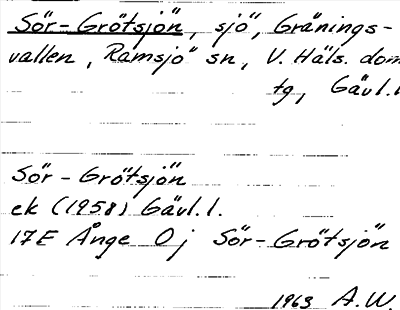 Sör-Grötsjön, sjö, Gränings-
vallen, Ramsjö sn, V. Häls. dom
tg, Gävl.l
Sör-Grötsjön
ek (1958) Gävl.l.
17E Ånge 0j Sör-Grötsjön
1963 A.W.